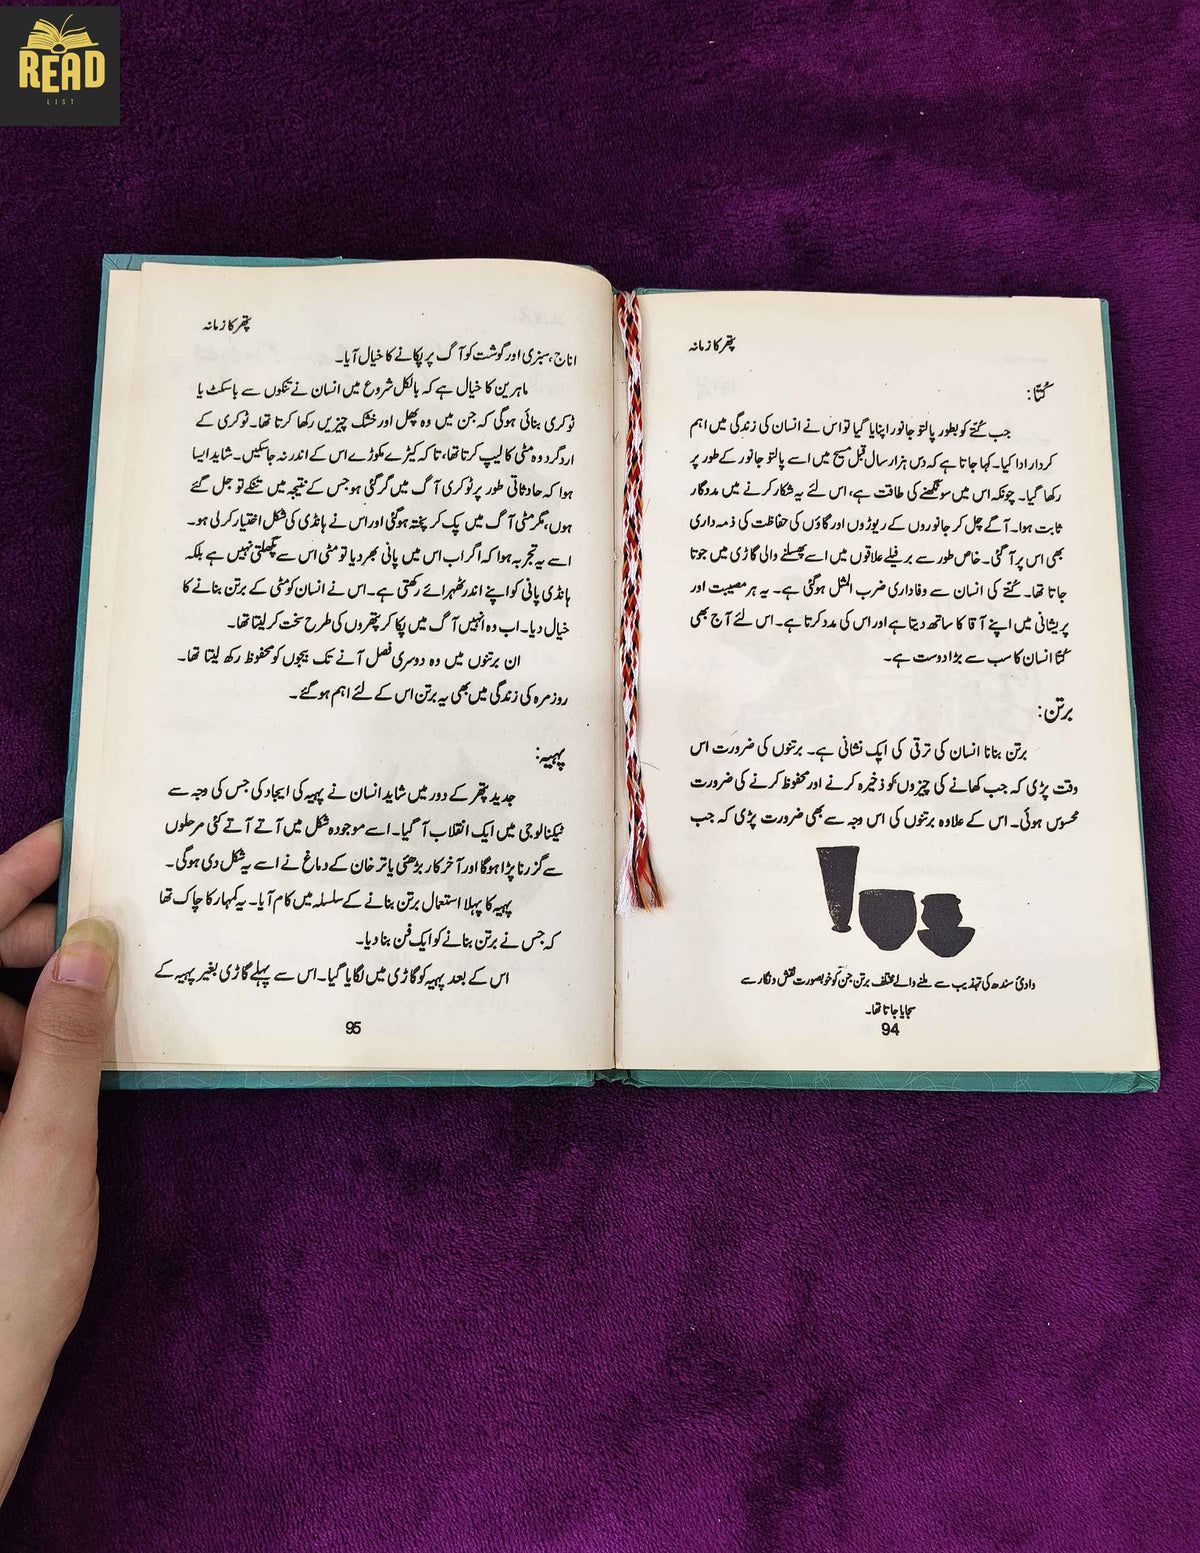 READ
LIST
پتھر کا زمانہ
کُتّا:
جب کُتّے کو بطور پالتو جانور اپنایا گیا تو اس نے انسان کی زندگی میں اہم
کردار ادا کیا۔ کہا جاتا ہے کہ دس ہزار سال قبل مسیح میں اسے پالتو جانور کے طور پر
رکھا گیا۔ چونکہ اس میں سونگھنے کی طاقت ہے، اس لئے یہ شکار کرنے میں مددگار
ثابت ہوا۔ آگے چل کر جانوروں کے ریوڑوں اور گاؤں کی حفاظت کی ذمہ داری
بھی اس پر آ گئی۔ خاص طور سے برفیلے علاقوں میں اسے پھسلنے والی گاڑی میں جوتا
جاتا تھا۔ کُتّے کی انسان سے وفاداری ضرب المثل ہو گئی ہے۔ یہ ہر مصیبت اور
پریشانی میں اپنے آقا کا ساتھ دیتا ہے اور اس کی مدد کرتا ہے۔ اس لئے آج بھی
کُتّا انسان کا سب سے بڑا دوست ہے۔
برتن:
برتن بنانا انسان کی ترقی کی ایک نشانی ہے۔ برتنوں کی ضرورت اس
وقت پڑی کہ جب کھانے کی چیزوں کو ذخیرہ کرنے اور محفوظ کرنے کی ضرورت
محسوس ہوئی۔ اس کے علاوہ برتنوں کی اس وجہ سے بھی ضرورت پڑی کہ جب
وادیٔ سندھ کی تہذیب سے ملنے والے مختلف برتن جن کو خوبصورت نقش و نگار سے
سجایا جاتا تھا۔
94
پتھر کا زمانہ
اناج، سبزی اور گوشت کو آگ پر پکانے کا خیال آیا۔
ماہرین کا خیال ہے کہ بالکل شروع میں انسان نے تنکوں سے باسکٹ یا
ٹوکری بنائی ہوگی کہ جن میں وہ پھل اور خشک چیزیں رکھا کرتا تھا۔ ٹوکری کے
اردگرد وہ مٹی کا لیپ کرتا تھا، تاکہ کیڑے مکوڑے اس کے اندر نہ جا سکیں۔ شاید ایسا
ہوا کہ حادثاتی طور پر ٹوکری آگ میں گر گئی ہو جس کے نتیجہ میں تنکے تو جل گئے
ہوں، مگر مٹی آگ میں پک کر پختہ ہو گئی اور اس نے ہانڈی کی شکل اختیار کر لی ہو۔
اسے یہ تجربہ ہوا کہ اگر اب اس میں پانی بھر دیا تو مٹی اس سے پگھلتی نہیں ہے بلکہ
ہانڈی پانی کو اپنے اندر ٹھہرائے رکھتی ہے۔ اس نے انسان کو مٹی کے برتن بنانے کا
خیال دیا۔ اب وہ انہیں آگ میں پکا کر پتھروں کی طرح سخت کر لیتا تھا۔
ان برتنوں میں وہ دوسری فصل آنے تک بیجوں کو محفوظ رکھ لیتا تھا۔
روزمرہ کی زندگی میں بھی یہ برتن اس کے لئے اہم ہو گئے۔
پہیہ:
جدید پتھر کے دور میں شاید انسان نے پہیہ کی ایجاد کی جس کی وجہ سے
ٹیکنالوجی میں ایک انقلاب آ گیا۔ اسے موجودہ شکل میں آتے آتے کئی مرحلوں
سے گزرنا پڑا ہوگا اور آخر کار بڑھئی یا ترخان کے دماغ نے اسے یہ شکل دی ہوگی۔
پہیہ کا پہلا استعمال برتن بنانے کے سلسلہ میں کام آیا۔ یہ کمہار کا چاک تھا
کہ جس نے برتن بنانے کو ایک فن بنا دیا۔
اس کے بعد پہیہ کو گاڑی میں لگایا گیا۔ اس سے پہلے گاڑی بغیر پہیہ کے
95